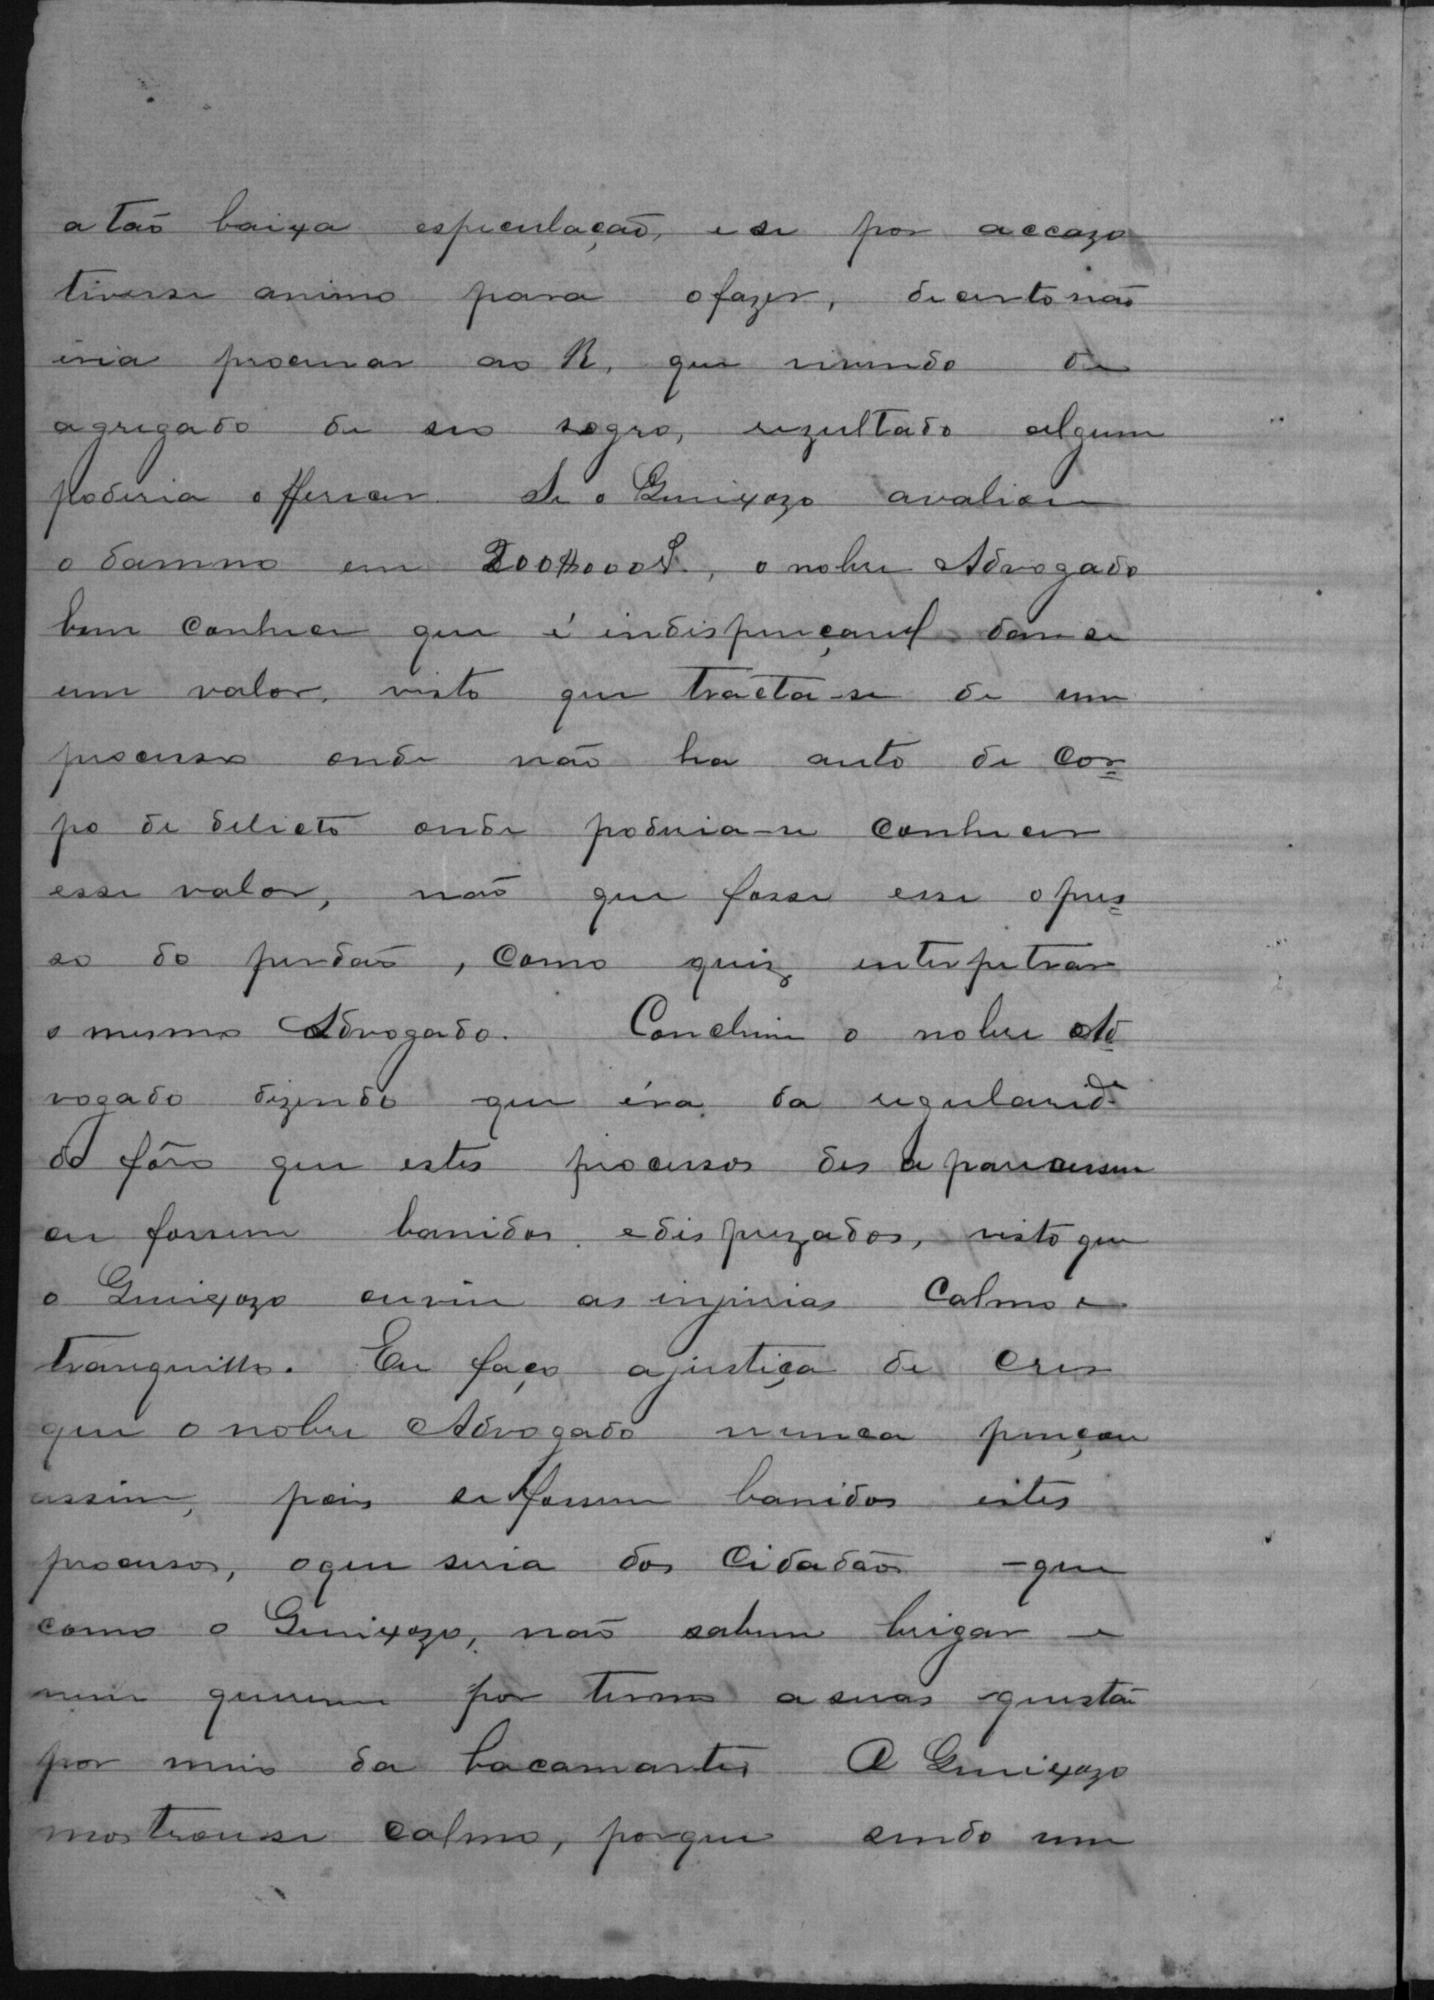 a tão baixa especulação, e se por accazo
tivesse animo para o fazer, de certo não
iria procurar ao R. que vivendo de
agregado de seo sogro, rezultado algum
poderia offerecer. Se o Queixozo avaliou
o damno em 200$000 , o nobre Advogado
bem conhece que é indispençavel dar-se
um valor, visto que tracta-se de um
processo onde não ha auto de cor=
po de delicto onde poderia-se conhecer
esse valor, não que fosse esse o pres=
so do perdão, como quiz interpetrar
o mesmo Advogado. Concluiu o nobre Ad=
vogado dizendo que éra da regularide
do fôro que estes processos desaparecessem
ou fossem banidos e disprezados, visto que
o Queixozo ouviu as injurias calmo e
tranquillo. Eu faço a justiça de crer
que o nobre Advogado nunca pençou
assim, pois se fossem banidos estes
processos, o que seria dos cidadãos – que
como o Queixozo, não sabem brigar e
nem querem por termo a suas questão
por meio da bacamartes O Queixozo
mostrou-se calmo, porque sendo um